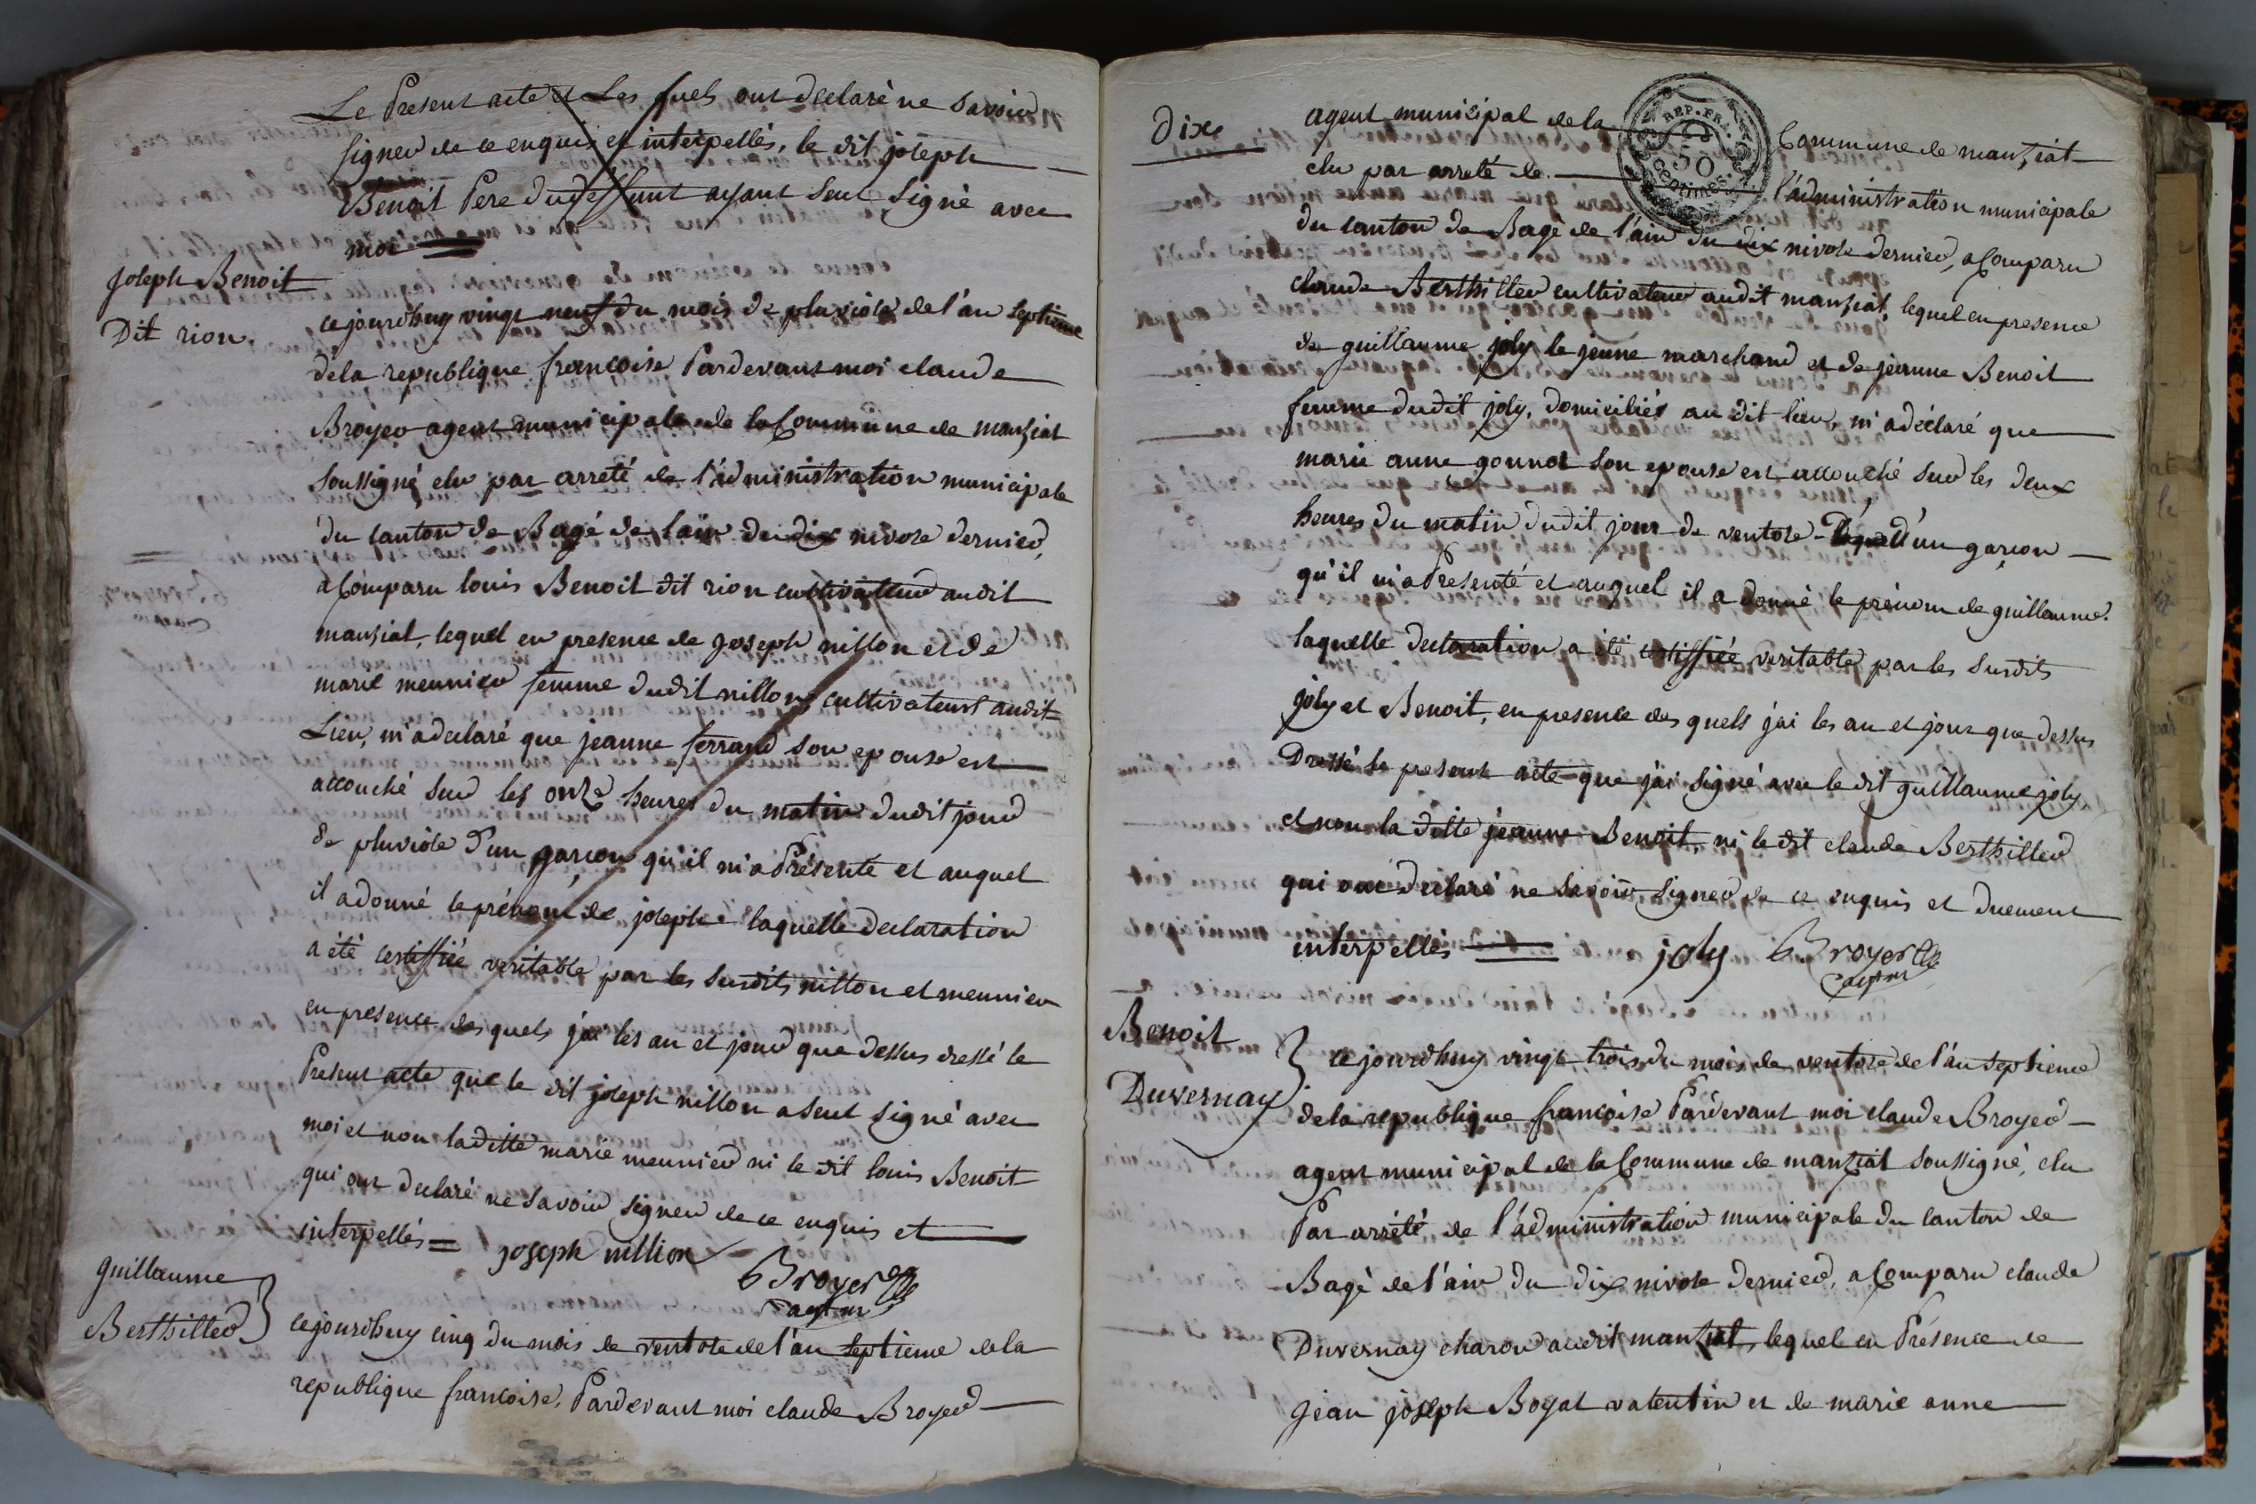 Le Present acte et Les quels ont declaré ne Savoir
signer de ce enquis et interpellés, le dit joseph
Benoit Pere du deffunt ayant seul Signé avec
moi
joseph Benoit
Dit rion
cejourdhuy vingt neuf du mois de pluviose de l'an Septieme
de la republique francoise Pardevant moi claude
Broyer agent municipal de la Commune de manziat
Soussigné elu par arreté de l'administration municipale
du canton de Bagé de l'ain du dix nivose dernier,
a Comparu louis Benoit dit rion cultivateur audit
manziat, lequel en presence de joseph nillon et de
marie meunier femme dudit nillon cultivateurs audit
Lieu, m'a declaré que jeanne ferrand son epouse est
accouché sur les onze heures du matin dudit jour
de pluviose d'un garcon qu'il m'a Présenté et auquel
il a donné le prénom de joseph laquelle declaration
a été certiffiée veritable par les surdits nillon et meunier
en presence des quels j'ai les an et jour que dessus dressé le
Present acte que le dit joseph nillon a seul signé avec
moi et non laditte marie meunier ni le dit louis Benoit
qui ont declaré ne savoir signer de ce enquis et
interpellés = joseph nillion
Broyer
agt mr
guillaume
Berthillier
cejourdhuy cinq du mois de ventose de l'an septieme de la
republique francoise, Pardevant moi claude Broyer
Dixe
agent municipal de la Commune de manziat
REP. FR.
50
centimes.
elu par arreté de l'administration municipale
du canton de Bagé de l'ain du dix nivose dernier, a Comparu
claude Berthillier cultivateur audit manziat, lequel en presence
de guillaume joly le jeune marchand et de jeanne Benoit
femme dudit joly, domiciliés au dit lieu, m'a déclaré que
marie anne gounot son epouse est accouché sur les deux
heures du matin dudit jour de ventose d'un garcon
qu'il m'a Presenté et auquel il a donné le prénom de guillaume.
laquelle declaration a été certiffiée veritable par les surdits
joly et Benoit, en presence des quels j'ai les an et jour que dessus
Dressé le present acte que j'ai signé avec le dit guillaume joly
et non la ditte jeanne Benoit, ni le dit claude Berthillier
qui ont declaré ne savoir signer de ce enquis et duement
interpellés
joly Broyer
agt mr
Benoit
Duvernay
cejourdhuy vingt trois du mois de ventose de l'an septieme
de la republique francoise Pardevant moi claude Broyer
agent municipal de la Commune de manziat soussigné, elu
Par arrété de l'administration municipale du canton de
Bagé de l'ain du dix nivose dernier, a Comparu claude
Duvernay charon audit manziat, lequel en Présence de
jean joseph Boyat valentin et de marie anne